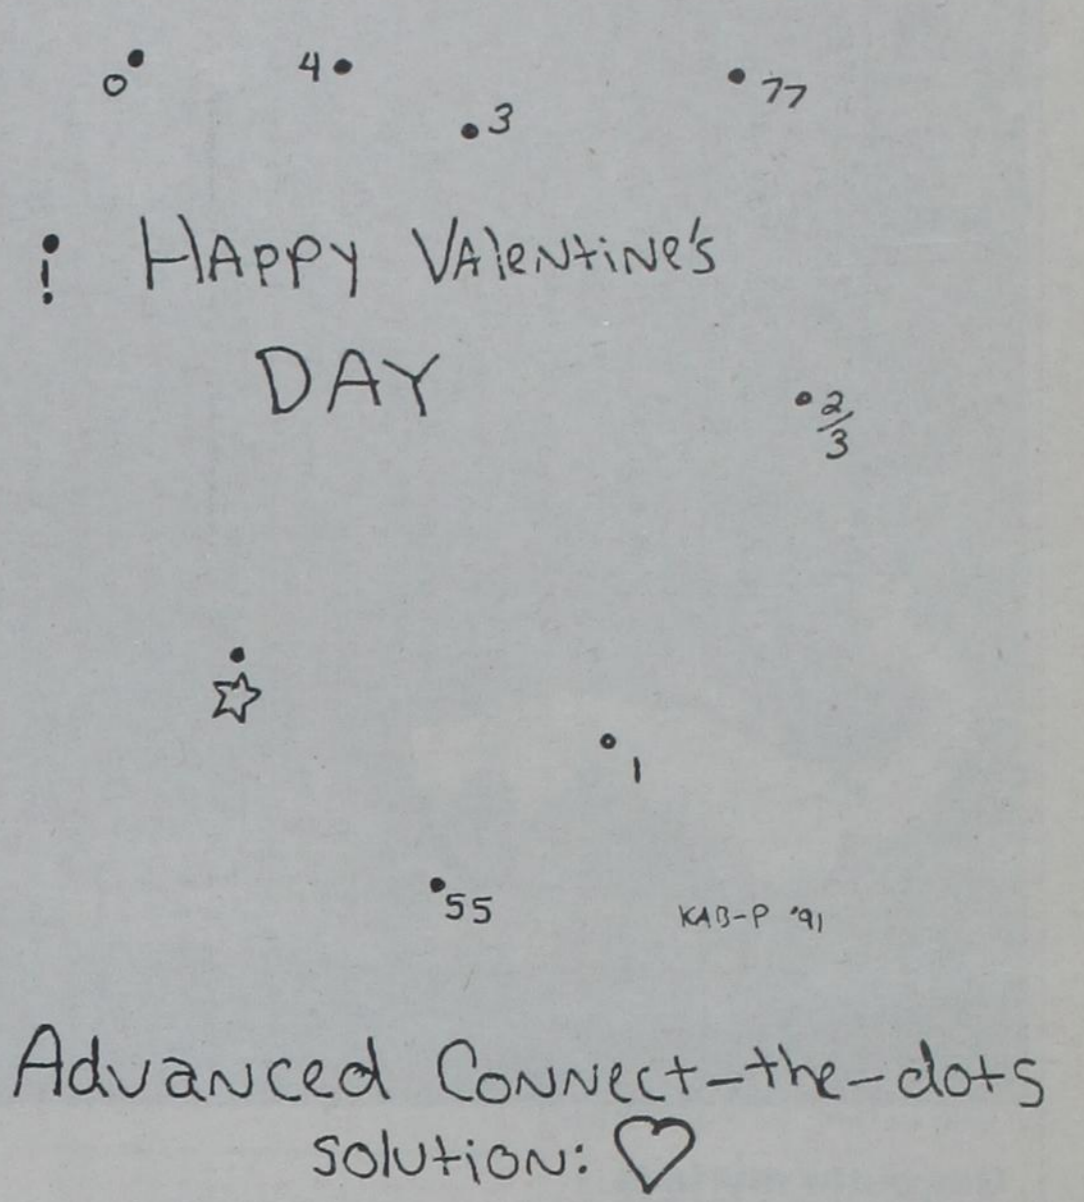 0
4
3
77
! Happy Valentine's
DAY
2/3
1
55
KAB-P '91
Advanced Connect-the-dots
solution: ♡